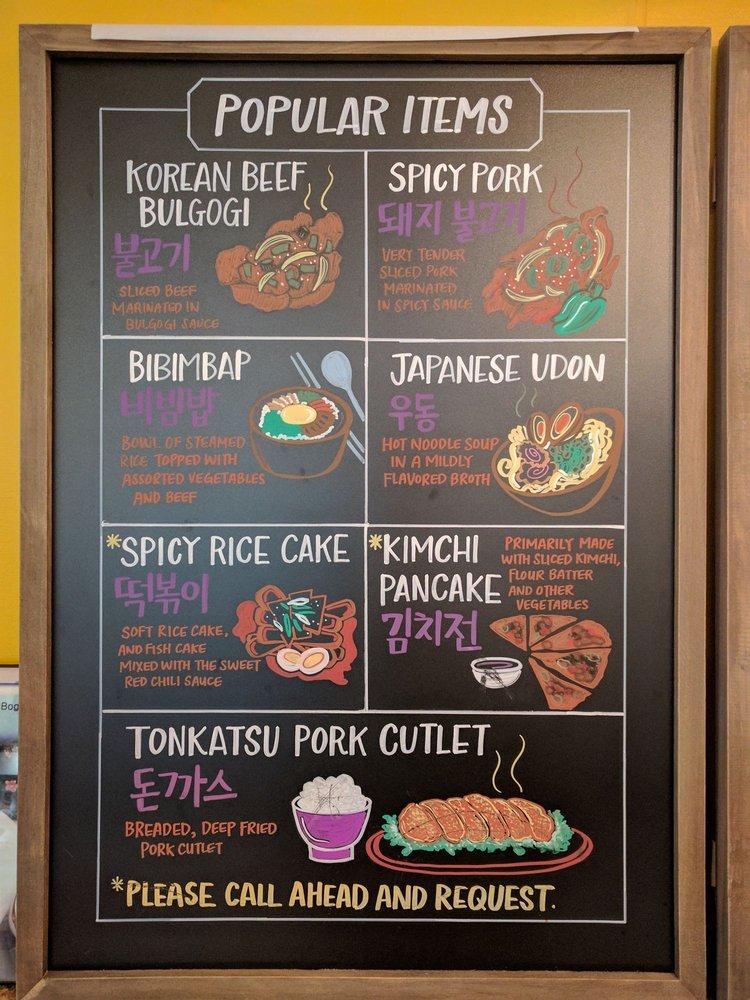 POPULAR ITEMS
KOREAN BEEF
BULGOGI
불고기
SLICED BEEF
MARINATED IN
BULGOGI SAUCE
SPICY PORK
돼지 불고기
VERY TENDER
SLICED PORK
MARINATED
IN SPICY SAUCE
BIBIMBAP
비빔밥
BOWL OF STEAMED
RICE TOPPED WITH
ASSORTED VEGETABLES
AND BEEF
JAPANESE UDON
우동
HOT NOODLE SOUP
IN A MILDLY
FLAVORED BROTH
*SPICY RICE CAKE
떡볶이
SOFT RICE CAKE,
AND FISH CAKE
MIXED WITH THE SWEET
RED CHILI SAUCE
*KIMCHI
PANCAKE
김치전
PRIMARILY MADE
WITH SLICED KIMCHI,
FLOUR BATTER
AND OTHER
VEGETABLES
TONKATSU PORK CUTLET
돈까스
BREADED, DEEP FRIED
PORK CUTLET
*PLEASE CALL AHEAD AND REQUEST.
Bog